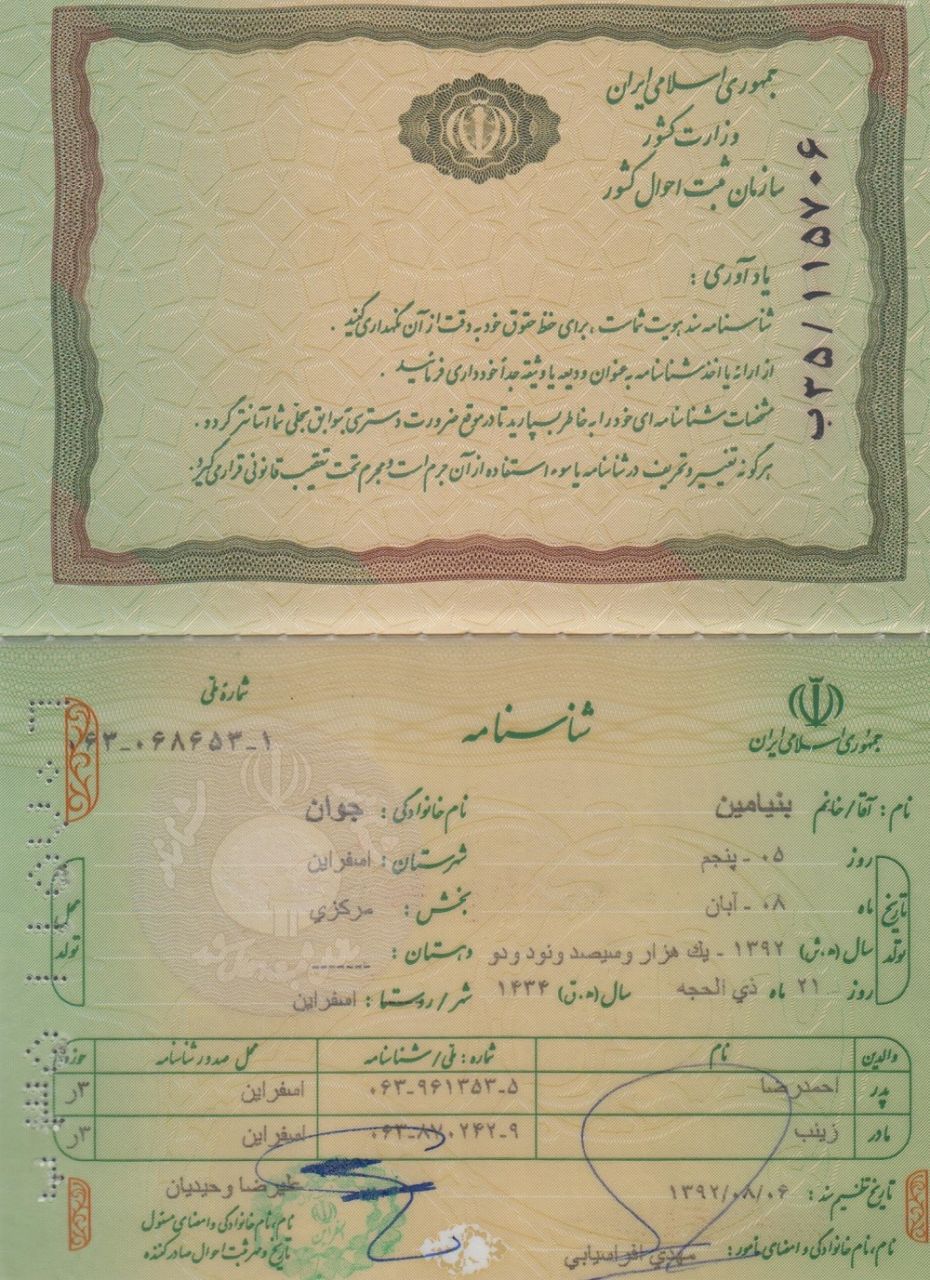 جمهوری اسلامی ایران
وزارت کشور
سازمان ثبت احوال کشور
ب۲۵/۱۱۵۷۰۶
یادآوری :
شناسنامه سند هویت شماست ، برای حفظ حقوق خود به دقت از آن نگهداری کنید .
از ارائه یا اخذ شناسنامه به عنوان ودیعه یا وثیقه جداً خودداری فرمائید .
مشخصات شناسنامه ای خود را به خاطر بسپارید تا در موقع ضرورت دسترسی به سوابق سجلی شما آسانتر گردد .
هرگونه تغییر و تحریف در شناسنامه یا سوء استفاده از آن جرم است و مجرم تحت تعقیب قانونی قرار می گیرد .
جمهوری اسلامی ایران
شناسنامه
شماره ملی
۰۶۳-۰۶۸۶۵۳-۱
نام : آقا/خانم بنیامین نام خانوادگی : جوان
تاریخ تولد
روز ۰۵ - پنجم
ماه ۰۸ - آبان
سال (ه.ش) ۱۳۹۲ - یك هزار وسیصد ونود ودو
روز ۲۱ ماه ذي الحجه سال (ه.ق) ۱۴۳۴
محل تولد
شهرستان : اسفراین
بخش : مرکزي
دهستان : -------
شهر/روستا : اسفراین
والدین نام شماره : ملی/شناسنامه محل صدور شناسنامه حوزه
پدر احمدرضا ۰۶۳-۹۶۱۳۵۳-۵ اسفراین ۳ر
مادر زینب ۰۶۳-۸۷۰۲۴۲-۹ اسفراین ۳ر
تاریخ تنظیم سند : ۱۳۹۲/۰۸/۰۶
نام، نام خانوادگی و امضای مأمور : مهدي افراسیابي
علیرضا وحیدیان
نام، نام خانوادگی و امضای مسئول
تاریخ و مهر ثبت احوال صادر کننده